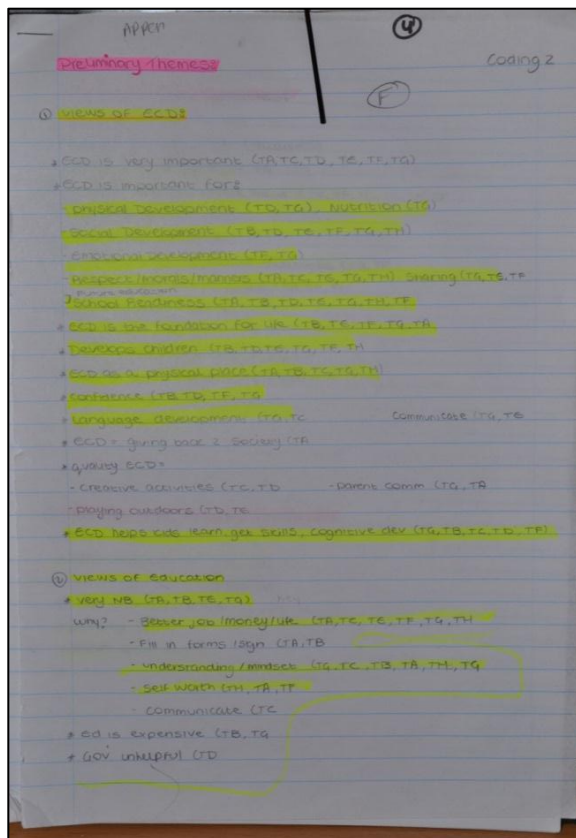 APPEN
④
Preliminary Themes:
Coding 2
F
① Views of ECD:
* ECD is very important (TA, TC, TD, TE, TF, TG)
* ECD is important for:
- Physical Development (TD, TG), Nutrition (TG)
- Social Development (TB, TD, TE, TF, TG, TH)
- Emotional Development (TF, TG)
- Respect/morals/manners (TA, TC, TE, TG, TH) Sharing (TG, TE, TF
- School Readiness (TA, TB, TD, TE, TG, TH, TF
* ECD is the foundation for life (TB, TE, TF, TG, TA
* Develops children (TB, TD, TE, TG, TF, TH
* ECD as a physical place (TA, TB, TC, TG, TH)
* Confidence (TB, TD, TF, TG
* Language development (TG, TC Communicate (TG, TE
* ECD = giving back 2 society (TA
* quality ECD =
- Creative activities (TC, TD - Parent comm (TG, TA
- Playing outdoors (TD, TE
* ECD helps kids learn, get skills, cognitive dev (TG, TB, TC, TD, TF)
② Views of Education
* Very NB (TA, TB, TE, TG)
Why? - Better job/money/life (TA, TC, TE, TF, TG, TH
- Fill in forms/sign (TA, TB
- understanding/mindset (TG, TC, TB, TA, TH, TG
- Self worth (TH, TA, TF
- Communicate (TC
* Ed is expensive (TB, TG
* GOV unhelpful (TD